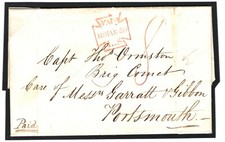 Capt Thos Ormston of
Brig Comet
Care of Messrs Garratt & Gibbon
Portsmouth
Paid